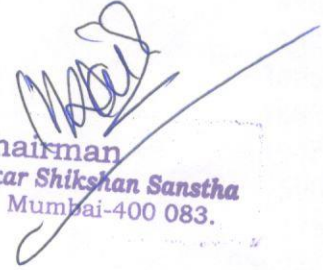 hairman
kar Shikshan Sanstha
Mumbai-400 083.